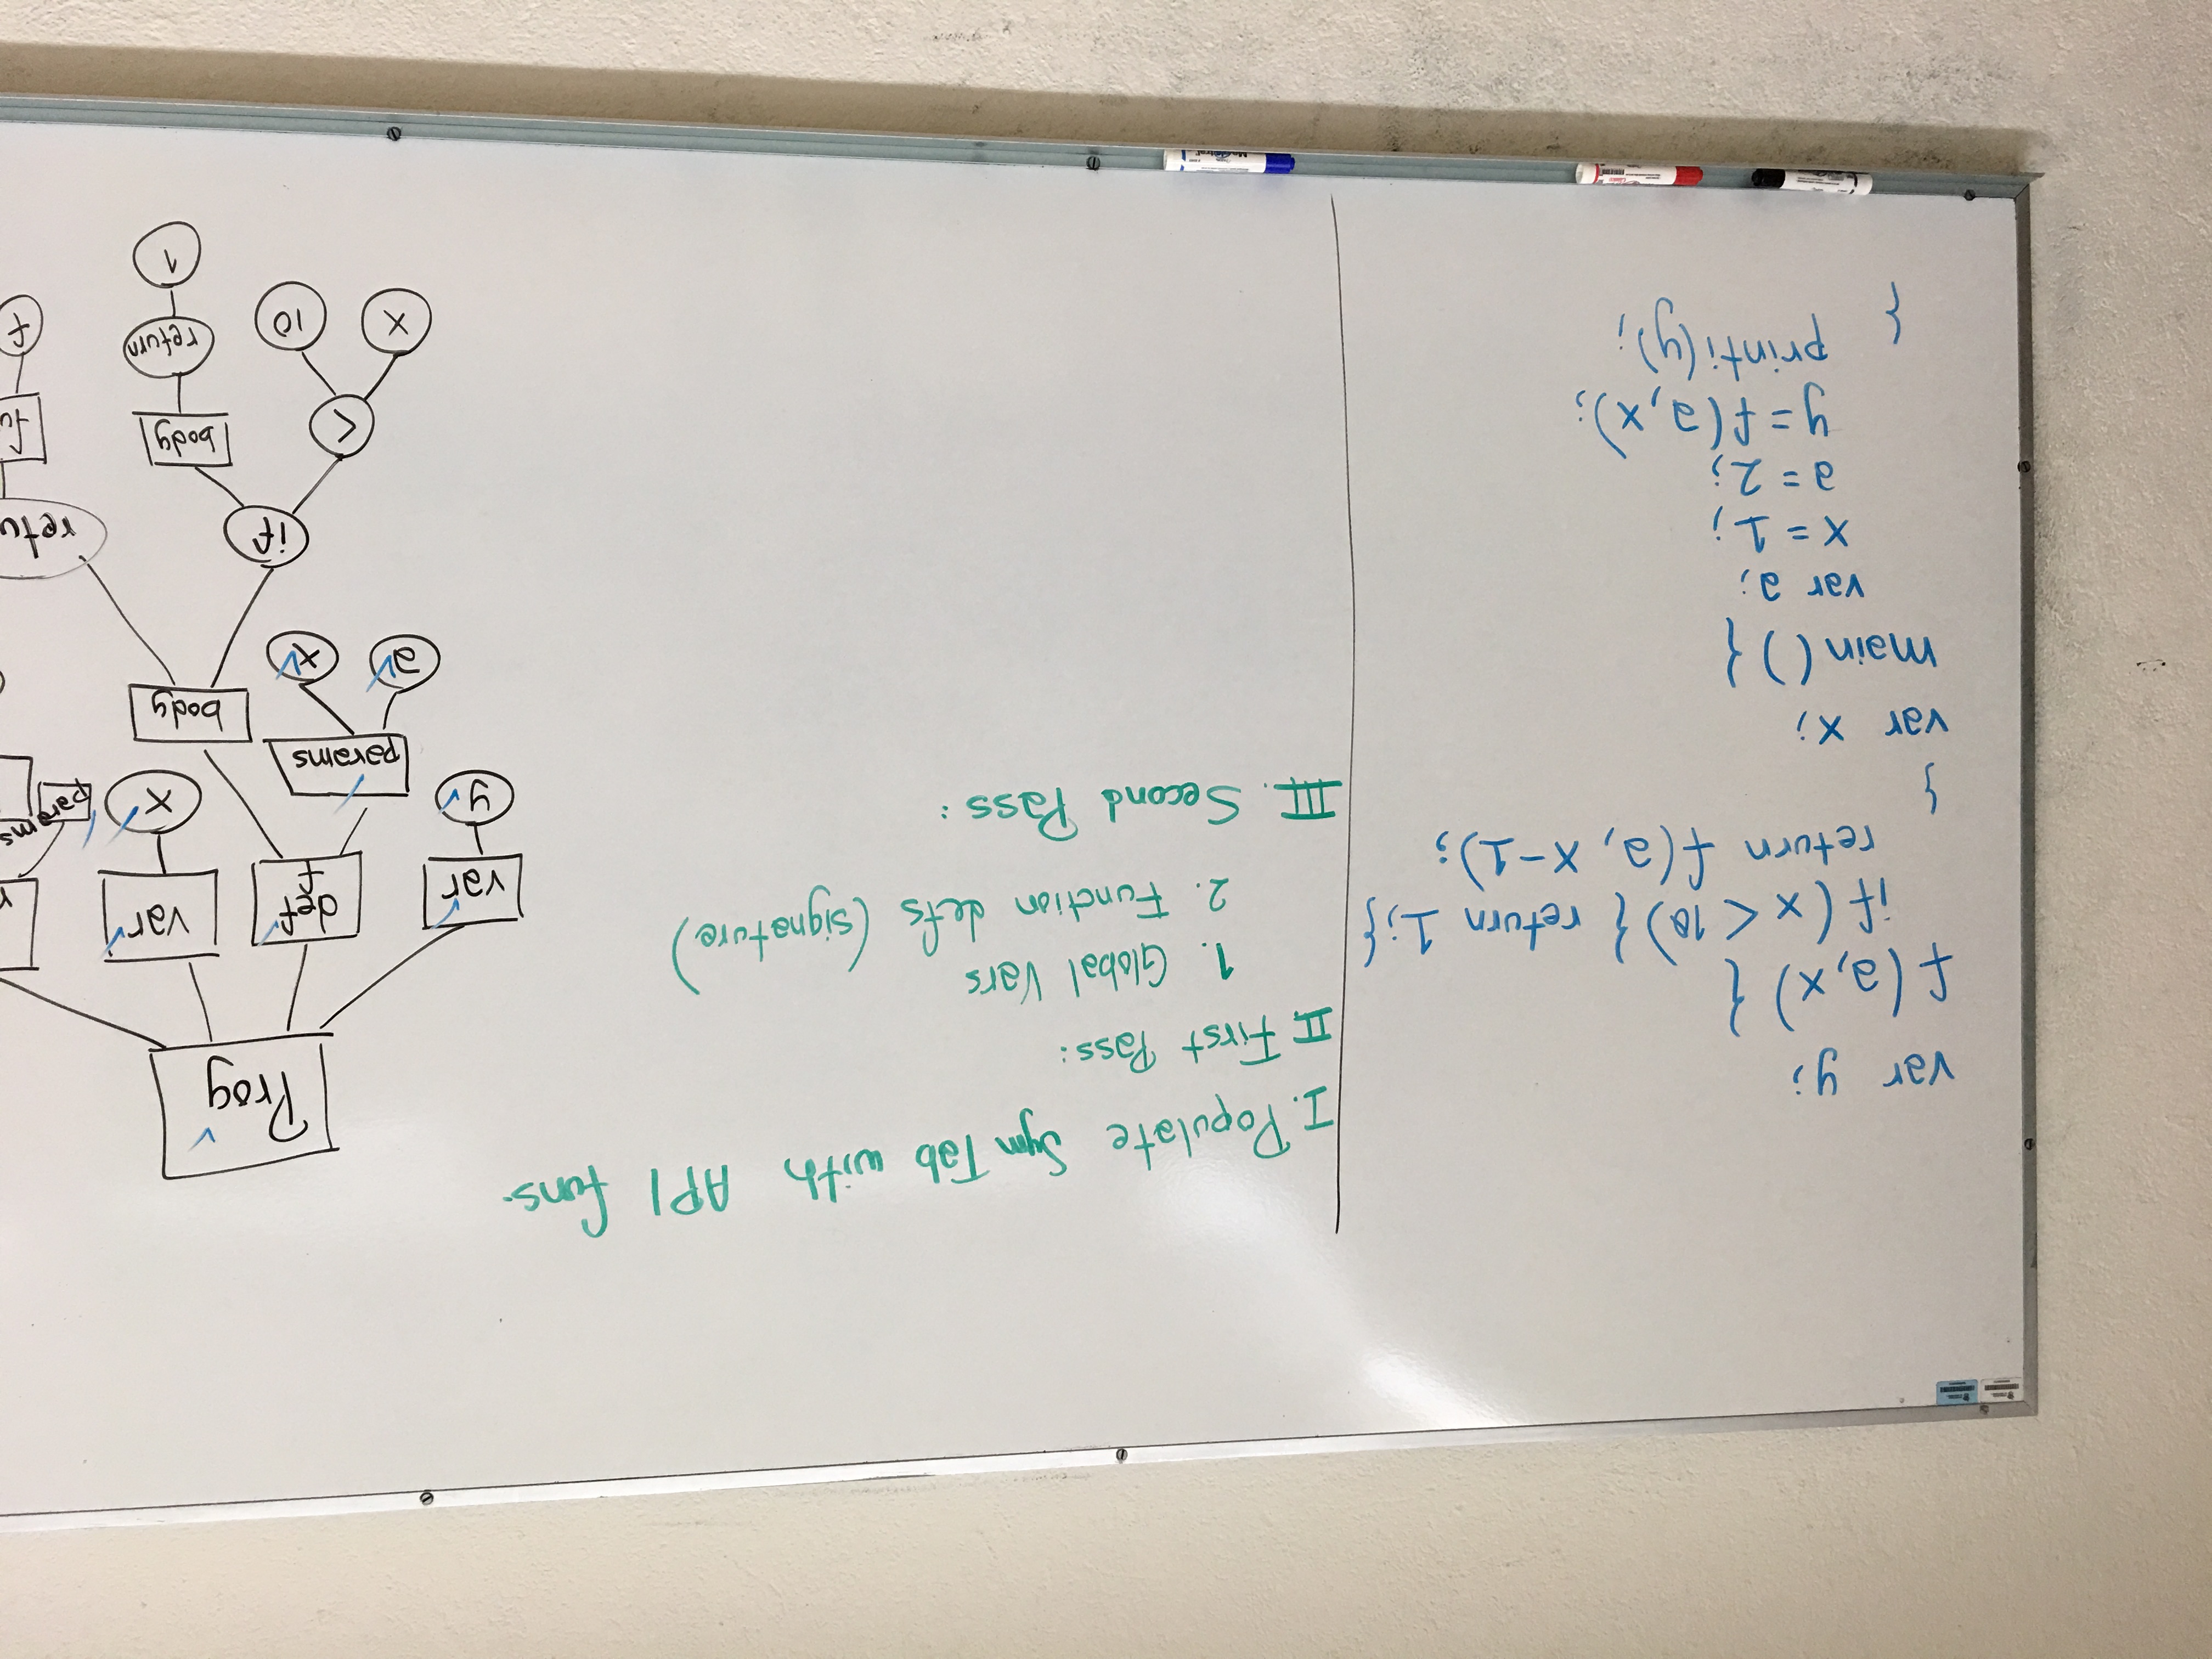 var y;
f(a,x) {
if(x < 10) { return 1; }
return f(a, x-1);
}
var x;
main() {
var a;
x = 1;
a = 2;
y = f(a,x);
printi(y);
}
I. Populate SymTab with API funs.
II. First Pass:
1. Global Vars
2. Function defs (signature)
III. Second Pass:
Prog
var
def
f
var
y
params
x
params
body
a
x
if
retu
<
body
fu
x
10
return
f
1